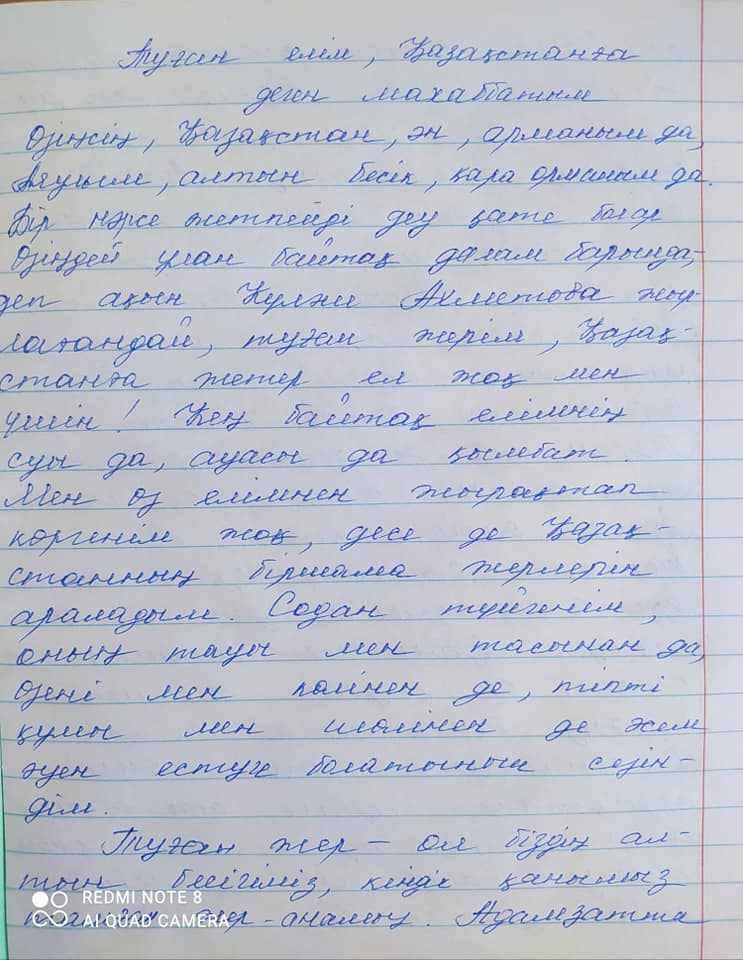 Туған елім, Қазақстанға
деген махаббатым
Өзіңсің, Қазақстан, ән, арманым да,
Аяулым, алтын бесік, қара орманым да.
Бір нәрсе жетпейді деу қате болар
Өзіңдей ұлан байтақ далам барында,-
деп ақын Күләш Ахметова жыр-
лағандай, туған жерім, Қазақ-
станға жетер ел жоқ мен
үшін! Кең байтақ елімнің
суы да, ауасы да қымбат.
Мен өз елімнен жырақтап
көргенім жоқ, десе де Қазақ-
станның біршама жерлерін
араладым. Содан түйгенім,
оның тауы мен тасынан да,
өзені мен көлінен де, тіпті
құмы мен шөлінен де әсем
әуен естуге болатынын сезін-
дім.
Туған жер – ол біздің ал-
тын бесігіміз, кіндік қанымыз
тамған жер-анамыз. Адамзатта
REDMI NOTE 8
AI QUAD CAMERA